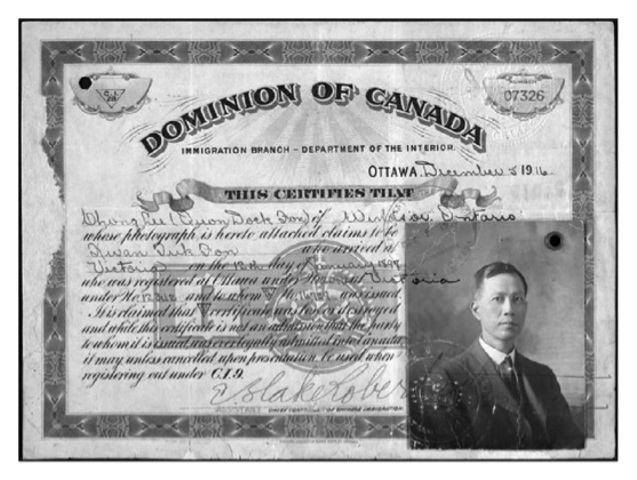 C.I. 28
NUMBER
07326
DOMINION OF CANADA
IMMIGRATION BRANCH - DEPARTMENT OF THE INTERIOR.
OTTAWA, December 5 1916
THIS CERTIFIES THAT
Chong Lee (Quon Dock Fon) of Windsor, Ontario
whose photograph is hereto attached claims to be
who arrived at
Victoria on the 12th day of January 1898
who was registered at Ottawa under Victoria
under No. and to whom No. was issued.
It is claimed that certificate was lost or destroyed
and while this certificate is not an admission that the party
to whom it is issued, was ever legally admitted into Canada,
it may unless cancelled upon presentation, be used when
registering out under C.I.9.
ASSISTANT CHIEF CONTROLLER OF CHINESE IMMIGRATION